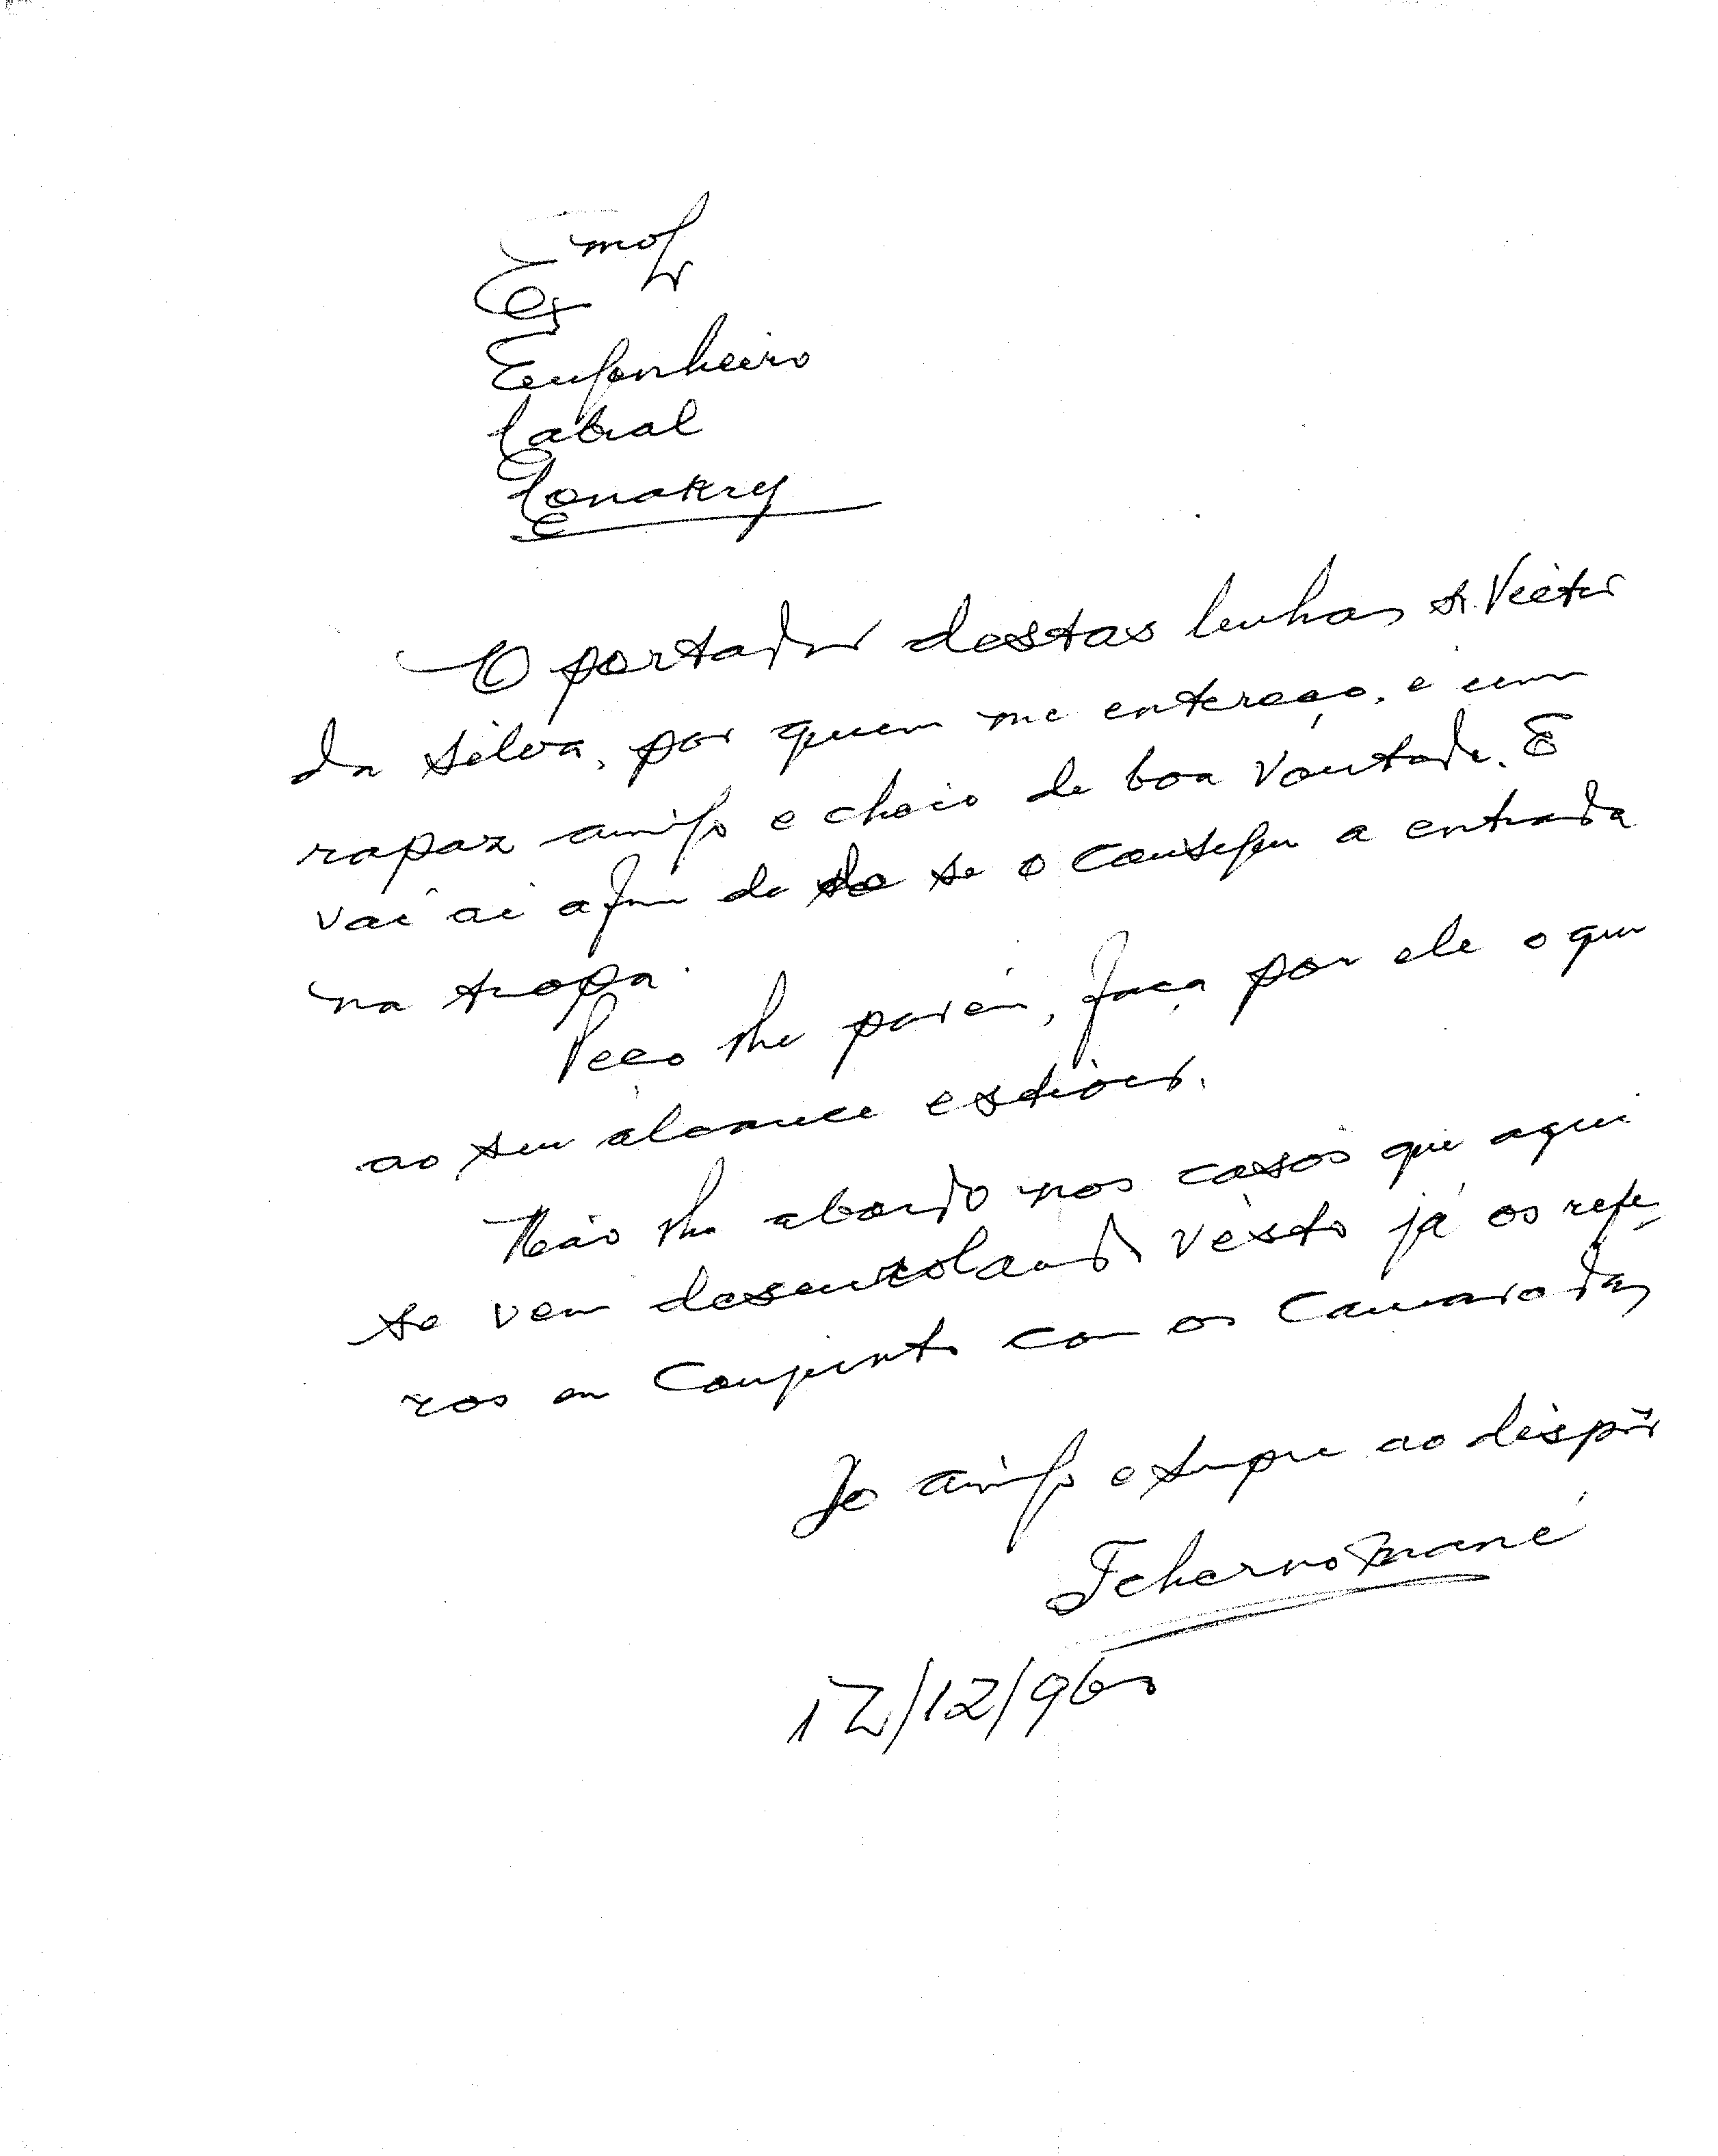 Exmo Sr
Engenheiro
Cabral
Conakry
O portador destas linhas Sr. Victor
da Silva, por quem me entereço, é um
rapaz amigo e cheio de boa vontade. E
vai ai afim de se o consegui a entrada
na tropa.
Peço lhe porém, faça por ele o que
ao seu alcance estiver.
Não lhe abordo nos casos que aqui
se vem desenrolando visto já os refe-
ros em conjunto com os camaradas
Do amigo e sempre ao dispôr
Tcherno Mané
12/12/960